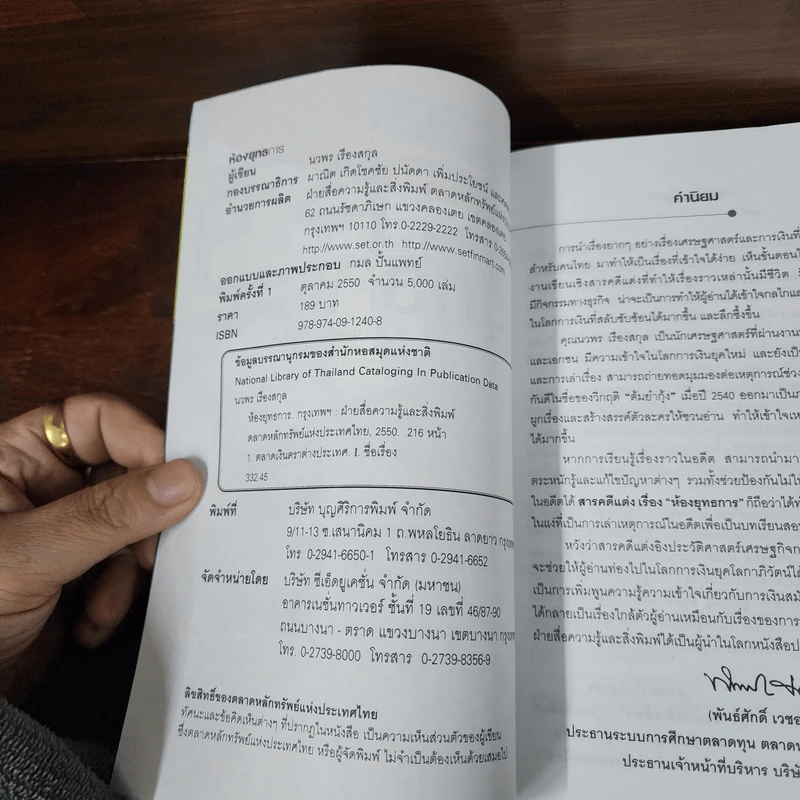 ห้องยุทธการ
ผู้เขียน นวพร เรืองสกุล
กองบรรณาธิการ ผาณิต เกิดโชคชัย ปนัดดา เพิ่มประโยชน์
อำนวยการผลิต ฝ่ายสื่อความรู้และสิ่งพิมพ์ ตลาดหลักทรัพย์แห่ง
62 ถนนรัชดาภิเษก แขวงคลองเตย เขตคลองเตย
กรุงเทพฯ 10110 โทร.0-2229-2222 โทรสาร
http://www.set.or.th http://www.setfinmart.com
ออกแบบและภาพประกอบ กมล ปั้นแพทย์
พิมพ์ครั้งที่ 1 ตุลาคม 2550 จำนวน 5,000 เล่ม
ราคา 189 บาท
ISBN 978-974-09-1240-8
ข้อมูลบรรณานุกรมของสำนักหอสมุดแห่งชาติ
National Library of Thailand Cataloging In Publication Data
นวพร เรืองสกุล
ห้องยุทธการ. กรุงเทพฯ : ฝ่ายสื่อความรู้และสิ่งพิมพ์
ตลาดหลักทรัพย์แห่งประเทศไทย, 2550. 216 หน้า
1. ตลาดเงินตราต่างประเทศ. I. ชื่อเรื่อง
332.45
พิมพ์ที่ บริษัท บุญศิริการพิมพ์ จำกัด
9/11-13 ซ.เสนานิคม 1 ถ.พหลโยธิน ลาดยาว
โทร. 0-2941-6650-1 โทรสาร 0-2941-6652
จัดจำหน่ายโดย บริษัท ซีเอ็ดยูเคชั่น จำกัด (มหาชน)
อาคารเนชั่นทาวเวอร์ ชั้นที่ 19 เลขที่ 46/87-90
ถนนบางนา - ตราด แขวงบางนา เขตบางนา
โทร. 0-2739-8000 โทรสาร 0-2739-8356-9
ลิขสิทธิ์ของตลาดหลักทรัพย์แห่งประเทศไทย
ทัศนะและข้อคิดเห็นต่างๆ ที่ปรากฏในหนังสือ เป็นความเห็นส่วนตัวของผู้เขียน
ซึ่งตลาดหลักทรัพย์แห่งประเทศไทย หรือผู้จัดพิมพ์ ไม่จำเป็นต้องเห็นด้วยเสมอไป
คำนิยม
การนำเรื่องยากๆ อย่างเรื่องเศรษฐศาสตร์และการเงินที่
สำหรับคนไทย มาทำให้เป็นเรื่องที่เข้าใจได้ง่าย เห็นขั้นตอน
งานเขียนเชิงสารคดีแต่งที่ทำให้เรื่องราวเหล่านั้นมีชีวิต
มีกิจกรรมทางธุรกิจ น่าจะเป็นการทำให้ผู้อ่านได้เข้าใจกลไก
ในโลกการเงินที่สลับซับซ้อนได้มากขึ้น และลึกซึ้งขึ้น
คุณนวพร เรืองสกุล เป็นนักเศรษฐศาสตร์ที่ผ่านงาน
และเอกชน มีความเข้าใจในโลกการเงินยุคใหม่ และยังเป็น
และการเล่าเรื่อง สามารถถ่ายทอดมุมมองต่อเหตุการณ์ช่วง
กันดีในชื่อของวิกฤติ “ต้มยำกุ้ง” เมื่อปี 2540 ออกมาเป็น
ผูกเรื่องและสร้างสรรค์ตัวละครให้ชวนอ่าน ทำให้เข้าใจ
ได้มากขึ้น
หากการเรียนรู้เรื่องราวในอดีต สามารถนำมา
ตระหนักรู้และแก้ไขปัญหาต่างๆ รวมทั้งช่วยป้องกันไม่ให้
ในอดีตได้ สารคดีแต่ง เรื่อง “ห้องยุทธการ” ก็ถือว่าได้
ในแง่ที่เป็นการเล่าเหตุการณ์ในอดีตเพื่อเป็นบทเรียน
หวังว่าสารคดีแต่งอิงประวัติศาสตร์เศรษฐกิจ
จะช่วยให้ผู้อ่านท่องไปในโลกการเงินยุคโลกาภิวัตน์ได้
เป็นการเพิ่มพูนความรู้ความเข้าใจเกี่ยวกับการเงิน
ได้กลายเป็นเรื่องใกล้ตัวผู้อ่านเหมือนกับเรื่องของการ
ฝ่ายสื่อความรู้และสิ่งพิมพ์ได้เป็นผู้นำในโลกหนังสือ
(พันธ์ศักดิ์ เวชอ
ประธานระบบการศึกษาตลาดทุน
ประธานเจ้าหน้าที่บริหาร